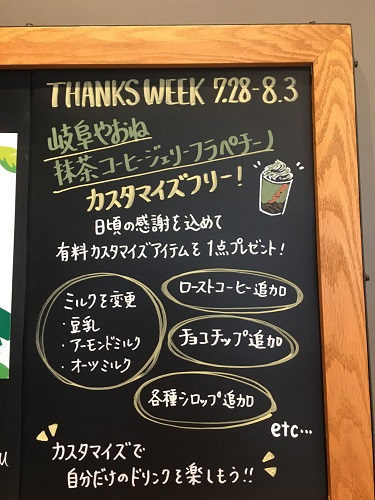 THANKS WEEK 7.28-8.3
岐阜やおね
抹茶コーヒージェリーフラペチーノ
カスタマイズフリー!
日頃の感謝を込めて
有料カスタマイズアイテムを1点プレゼント!
ミルクを変更
・豆乳
・アーモンドミルク
・オーツミルク
ローストコーヒー追加
チョコチップ追加
各種シロップ追加
etc…
カスタマイズで
自分だけのドリンクを楽しもう!!